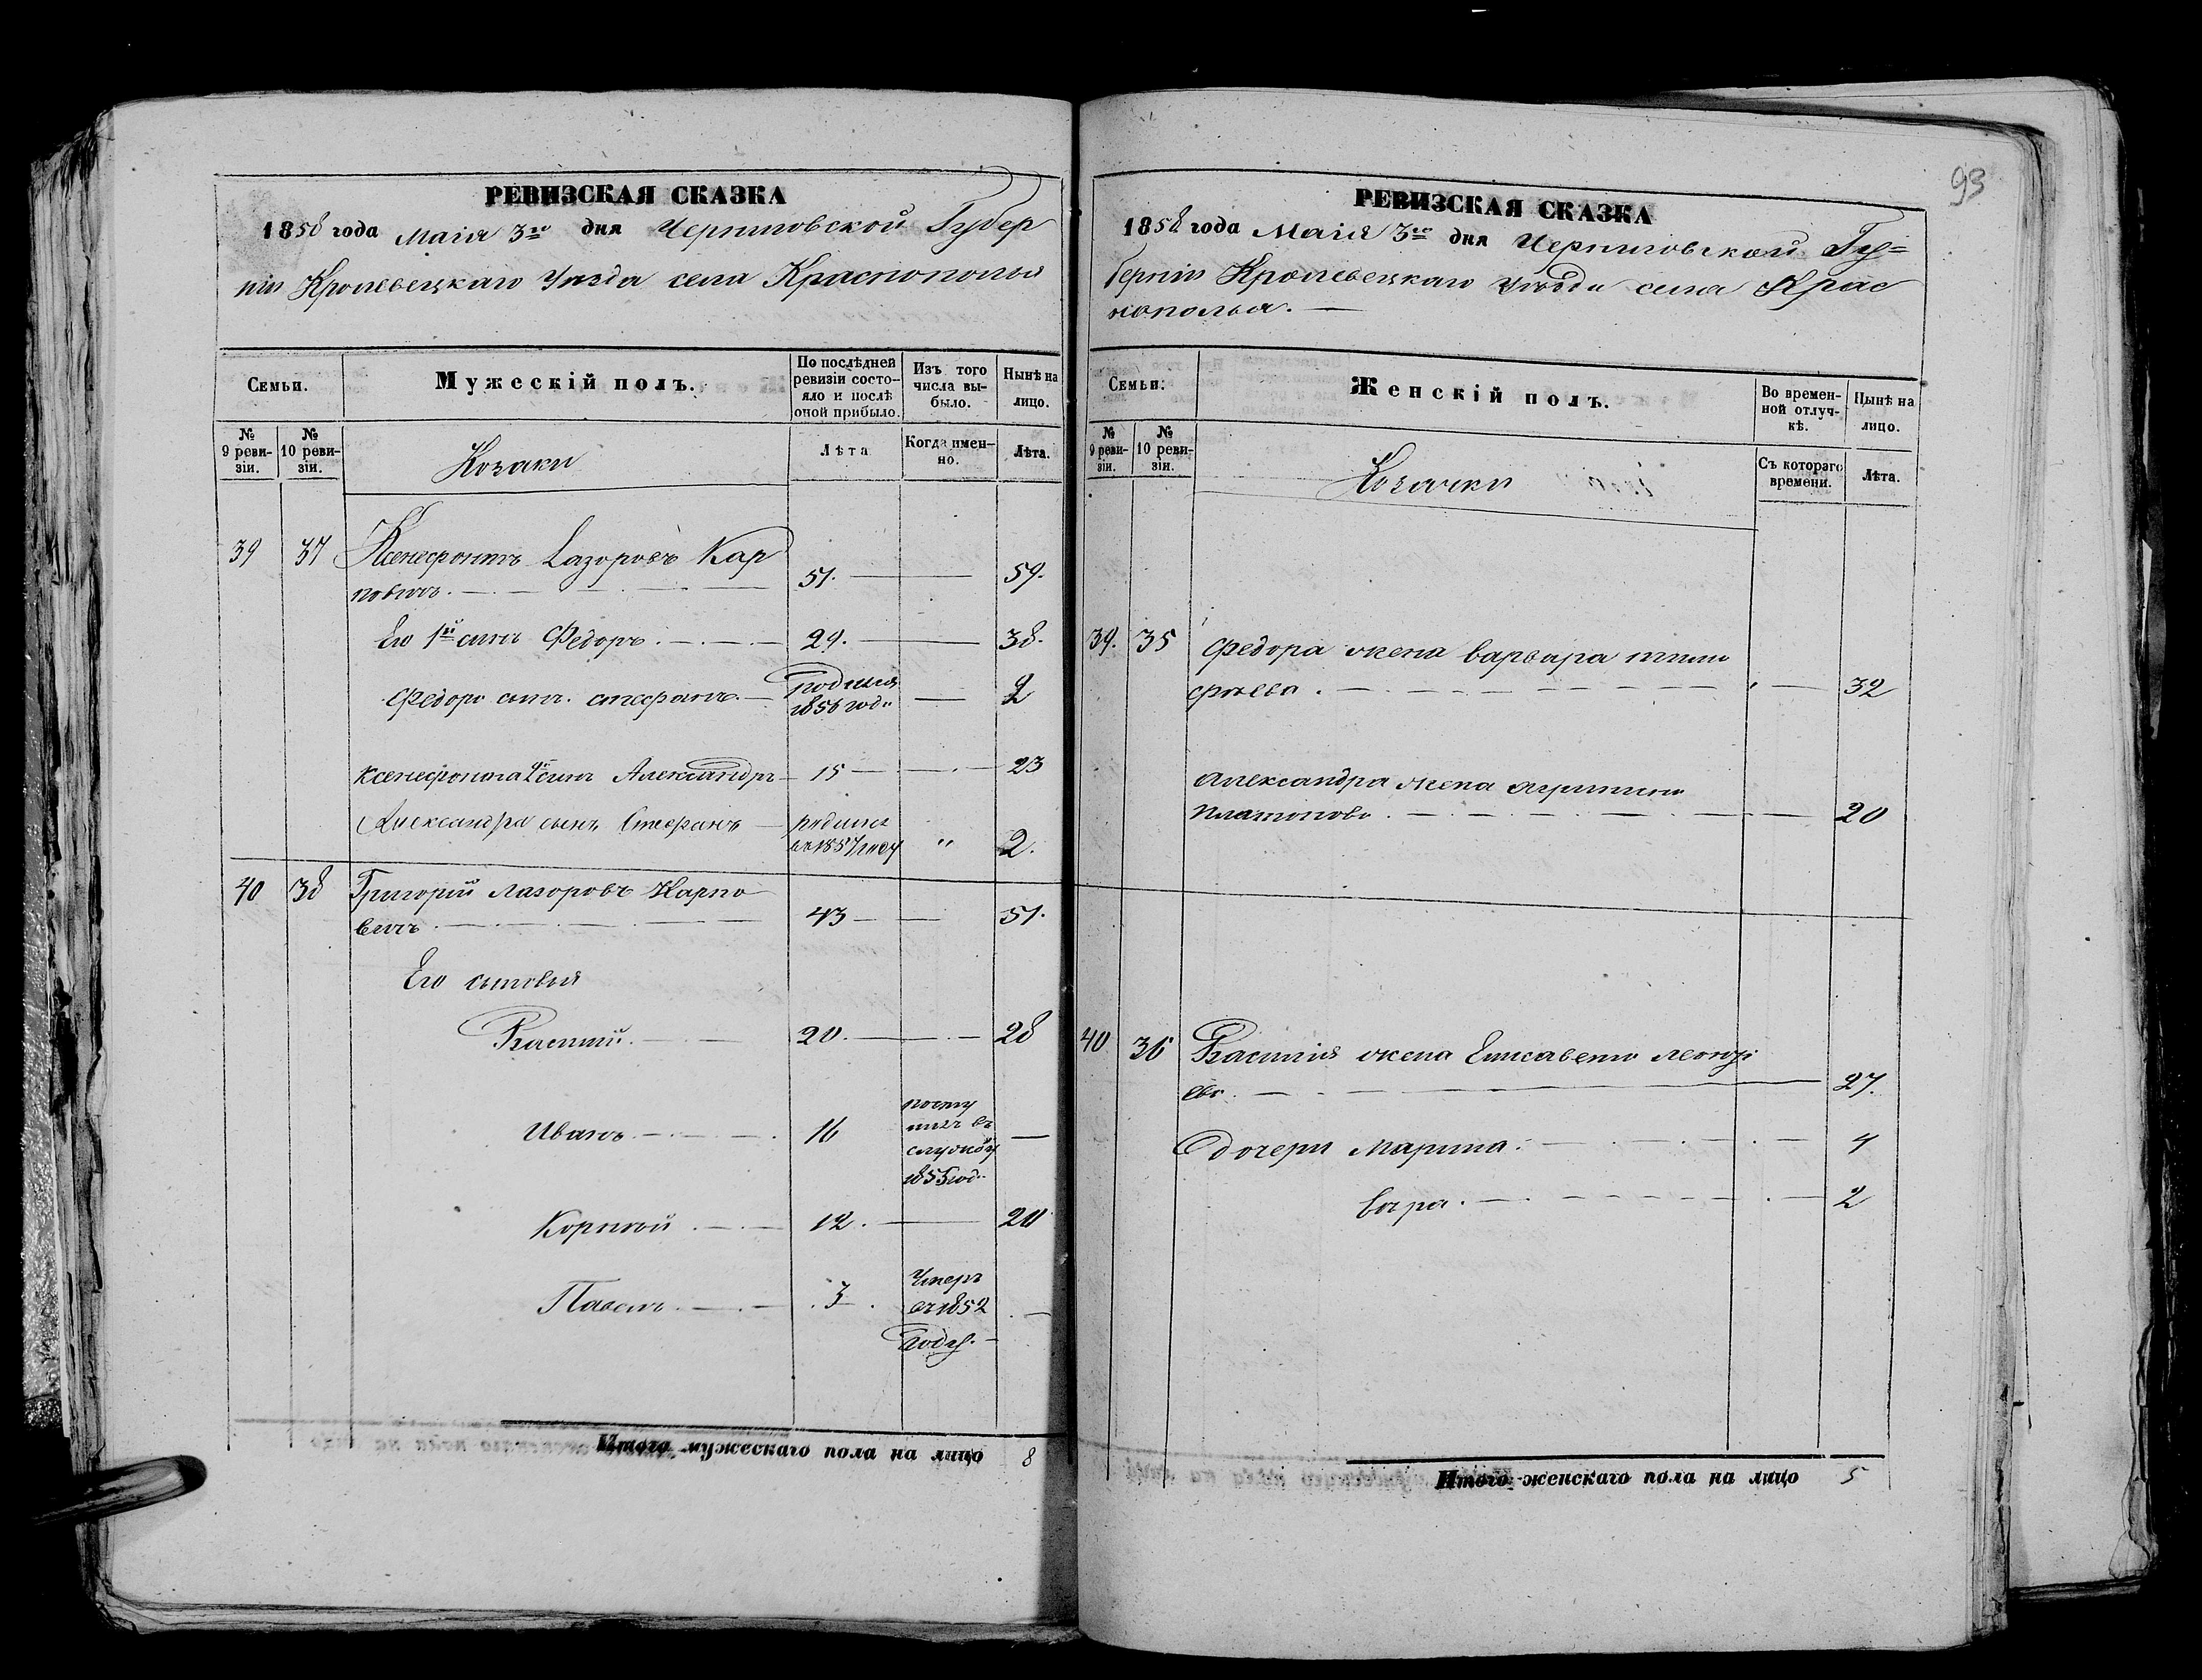 93
РЕВИЗСКАЯ СКАЗКА
1858 года Маія 3го дня Черниговской Губер
ніи Кролевецкаго Уезда села Краснополья
Семьи.
Мужескій полъ.
По послѣдней ревизіи состо-яло и послѣ оной прибыло.
Изъ того числа вы-было.
Нынѣ на лицо.
№ 9 реви-зіи.
№ 10 реви-зіи.
Козаки
Лѣта
Когда имен-но.
Лѣта.
39 37 Ксенофонтъ Лазоровъ Кар
повичъ. 51. 59.
Его 1й сынъ Федоръ. 29. 38.
Федора сынъ Стефанъ. родился 1856 года 2
Ксенофонта 2й сынъ Александръ 15 23
Александра сынъ Стефанъ родился въ 1857 году " 2.
40 38 Григорій Лазоровъ Карпо
вичъ. 43 51.
Его сыновья
Василий. 20. 28
Иванъ. 16 посту
пилъ въ
службу
1855 год.
Корнѣй 12. 20
Павелъ. 3. Умеръ
въ 1852
году.
Итого мужескаго пола на лицо 8
РЕВИЗСКАЯ СКАЗКА
1858 года Маія 3го дня Черниговской Гу=
берніи Кролевецкаго Уѣзда села Крас
нополья.
Семьи.
Женскій полъ.
Во времен-ной отлуч-кѣ.
Нынѣ на лицо.
№ 9 реви-зіи.
№ 10 реви-зіи.
Козачки
Съ котораго времени.
Лѣта.
39. 35 Федора жена Варвара Тимо
фѣева. 32
Александра жена Агрипина
Платонова. 20
40 36 Василия жена Елисавета Леонтi
ева. 27.
дочери Марина. 4
Вера. 2
Итого женскаго пола на лицо 5